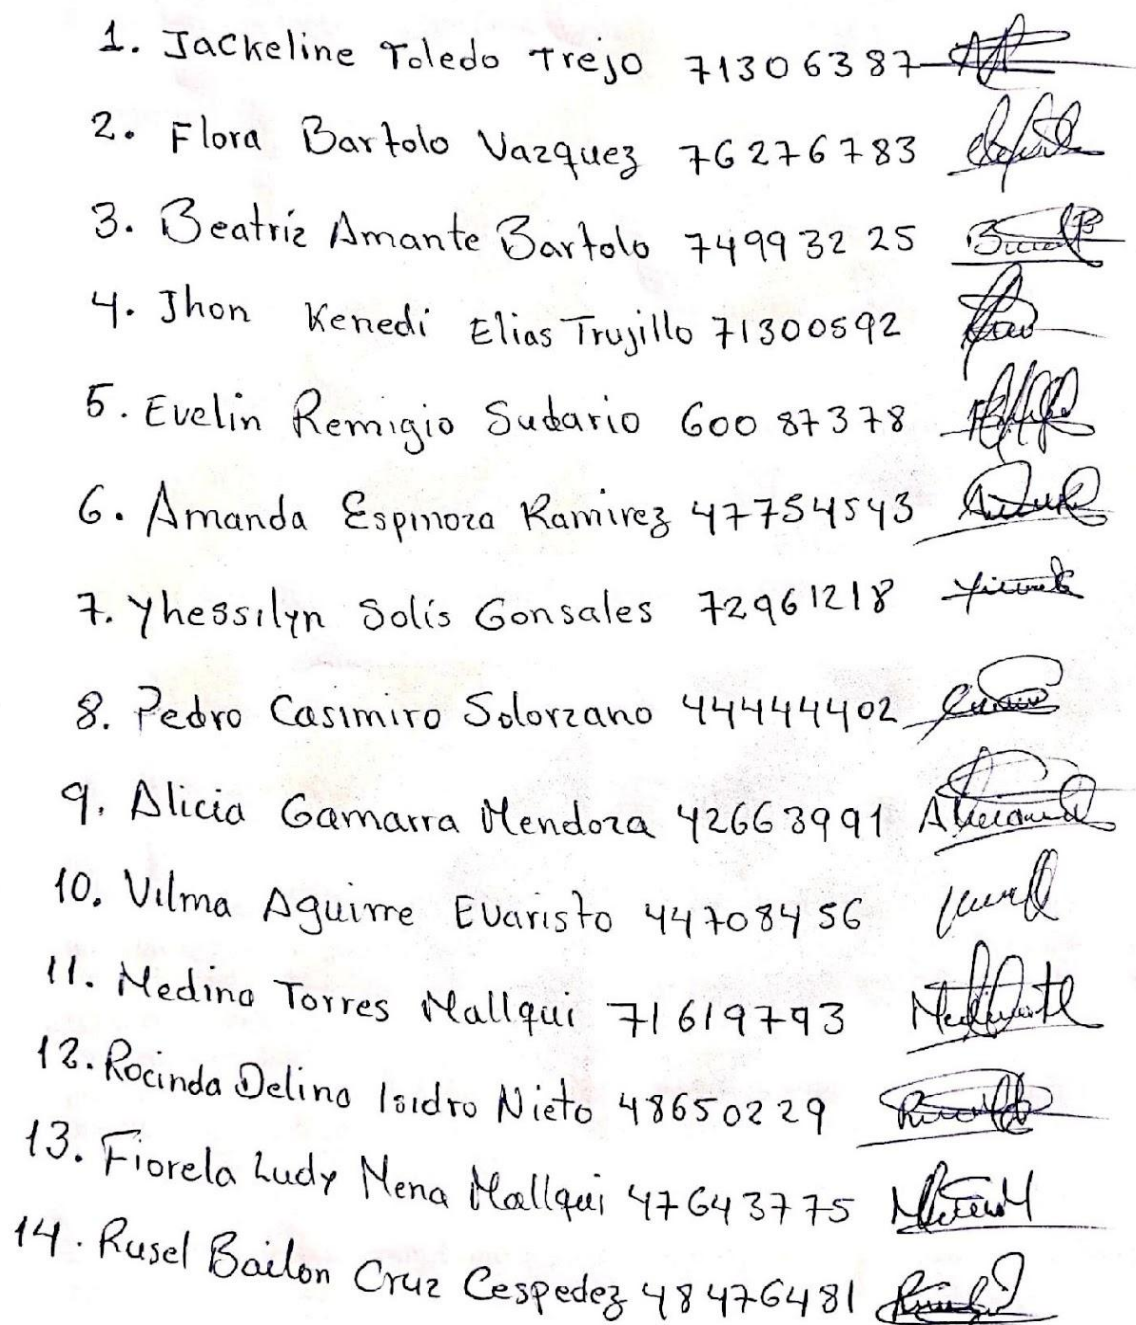 1. Jackeline Toledo Trejo 71306387
2. Flora Bartolo Vazquez 76276783
3. Beatriz Amante Bartolo 74993225
4. Jhon Kenedi Elias Trujillo 71300592
5. Evelin Remigio Sudario 60087378
6. Amanda Espinoza Ramirez 47754543
7. Yhessilyn Solis Gonsales 72961218
8. Pedro Casimiro Solorzano 44444402
9. Alicia Gamarra Mendoza 42663991
10. Vilma Aguirre Evaristo 44708456
11. Medina Torres Mallqui 71619793
12. Rocinda Delina Isidro Nieto 48650229
13. Fiorela Ludy Mena Mallqui 47643775
14. Rusel Bailon Cruz Cespedez 48476481